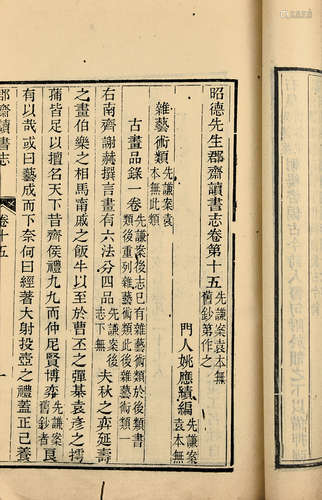 昭德先生郡齋讀書志卷第十五先謙案袁本無舊鈔第作之
門人姚應績編先謙案袁本無
雜藝術類先謙案袁本無此類
古畫品錄一卷先謙案後志已有雜藝術類於後類書類後重列雜藝術類此後雜藝術類一
右南齊謝赫撰言畫有六法分四品先謙案後志下無夫秋之弈延壽
之畫伯樂之相馬甯戚之飯牛以至於曹丕之彈棊袁彥之摴
蒲皆足以擅名天下昔齊侯禮九九而仲尼賢博弈先謙案舊鈔者良
有以哉或曰藝成而下奈何曰經著大射投壺之禮蓋正己養
郡齋讀書志 卷十五